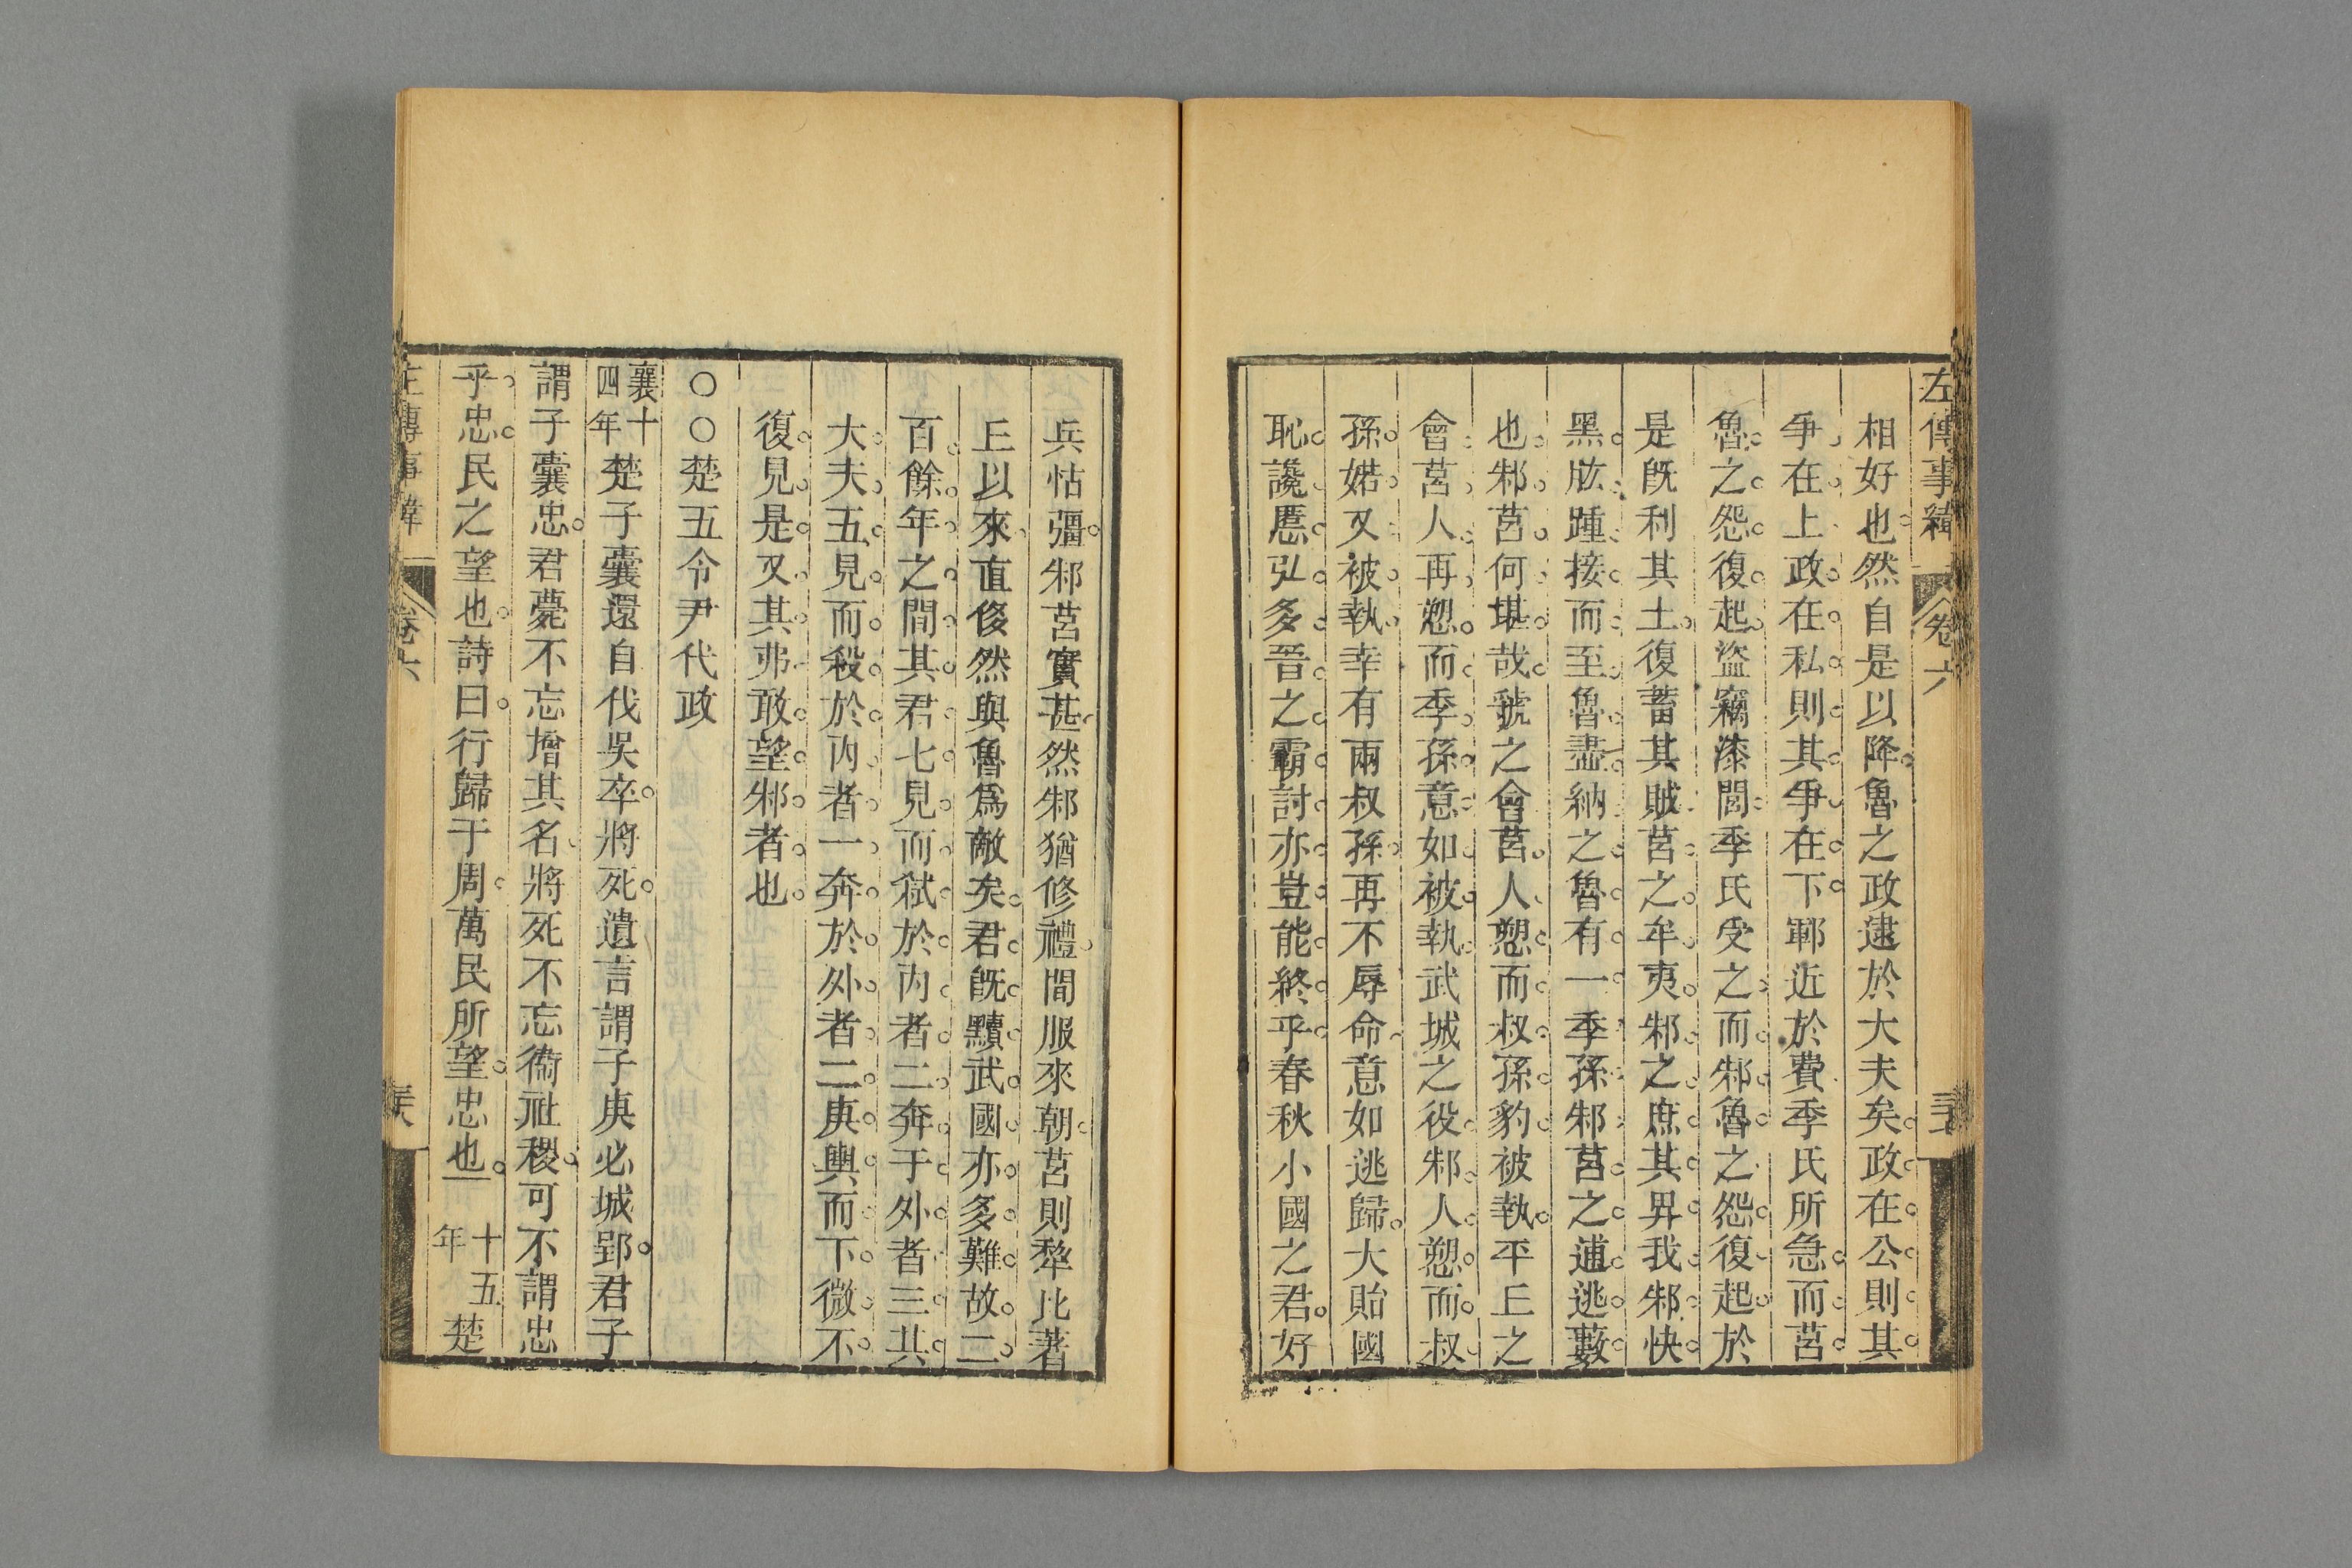 左傳事緯 卷六
相好也然自是以降魯之政逮於大夫矣政在公則其
爭在上政在私則其爭在下鄆近於費季氏所急而莒
魯之怨復起盜竊漆閭季氏受之而邾魯之怨復起於
是旣利其土復蓄其賊莒之牟夷邾之庶其畀我邾快
黑肱踵接而至魯盡納之魯有一季孫邾莒之逋逃藪
也邾莒何堪哉虢之會莒人愬而叔孫豹被執平丘之
會莒人再愬而季孫意如被執武城之役邾人愬而叔
孫婼又被執幸有兩叔孫再不辱命意如逃歸大貽國
恥讒慝弘多晉之霸討亦豈能終乎春秋小國之君好
兵怙彊邾莒實甚然邾猶修禮間服來朝莒則犂比著
丘以來直俊然與魯爲敵矣君旣黷武國亦多難故二
百餘年之間其君七見而弒於內者二奔于外者三其
大夫五見而殺於內者一奔於外者二庚輿而下微不
復見是又其弗敢望邾者也
○○楚五令尹代政
襄十四年楚子囊還自伐吳卒將死遺言謂子庚必城郢君子
謂子囊忠君薨不忘增其名將死不忘衞社稷可不謂忠
乎忠民之望也詩曰行歸于周萬民所望忠也 十五年楚
左傳事緯 卷六